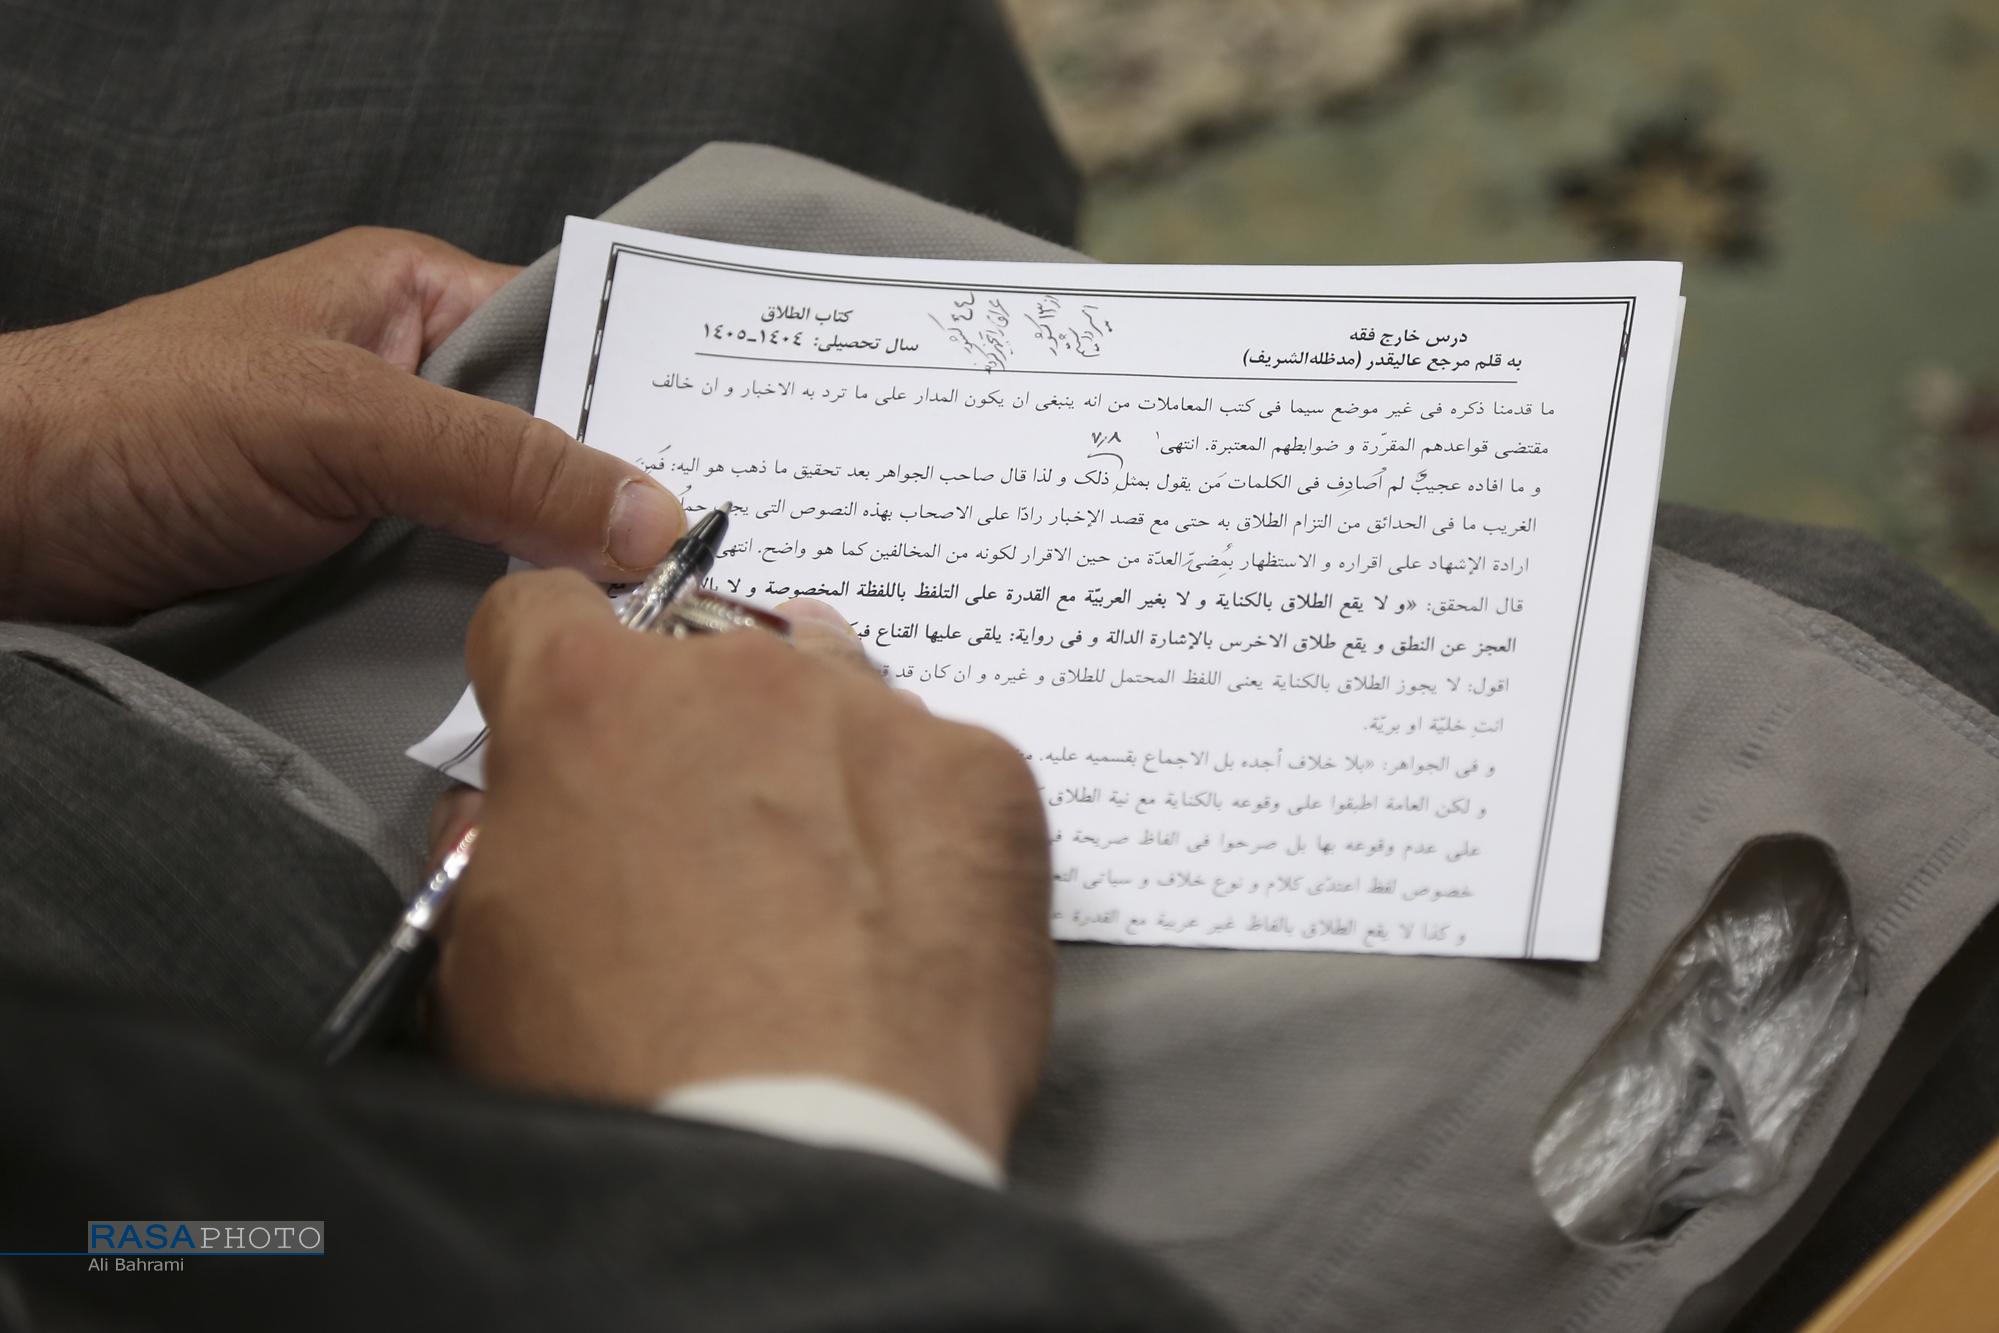 درس خارج فقه
به قلم مرجع عالیقدر (مدظله‌الشریف)
کتاب الطلاق
سال تحصیلی: ۱۴۰۴-۱۴۰۵
ما قدمنا ذکره فی غیر موضع سیما فی کتب المعاملات من انه ینبغی ان یکون المدار علی ما ترد به الاخبار و ان خالف
مقتضی قواعدهم المقرّرة و ضوابطهم المعتبرة. انتهی۱
۷٫۸
و ما افاده عجیبٌ لم اُصادِف فی الکلمات مَن یقول بمثلِ ذلک و لذا قال صاحب الجواهر بعد تحقیق ما ذهب هو الیه: فَمِنَ
الغریب ما فی الحدائق من التزام الطلاق به حتی مع قصد الإخبار رادّا علی الاصحاب بهذه النصوص التی
ارادة الإشهاد علی اقراره و الاستظهار بمُضیِّ العدّة من حین الاقرار لکونه من المخالفین کما هو واضح. انتهی
قال المحقق: «و لا یقع الطلاق بالکنایة و لا بغیر العربیّة مع القدرة علی التلفظ باللفظة المخصوصة و لا
العجز عن النطق و یقع طلاق الاخرس بالإشارة الدالة و فی روایة: یلقی علیها القناع
اقول: لا یجوز الطلاق بالکنایة یعنی اللفظ المحتمل للطلاق و غیره و ان کان قد
انتِ خلیّة او بریّة.
و فی الجواهر: «بلا خلاف أجده بل الاجماع بقسمیه علیه.
و لکن العامة اطبقوا علی وقوعه بالکنایة مع نیة الطلاق
علی عدم وقوعه بها بل صرحوا فی الفاظ صریحة
خصوص لفظ اعتدّی کلام و نوع خلاف و سیاتی
و کذا لا یقع الطلاق بالفاظ غیر عربیة مع القدرة
RASAPHOTO
Ali Bahrami